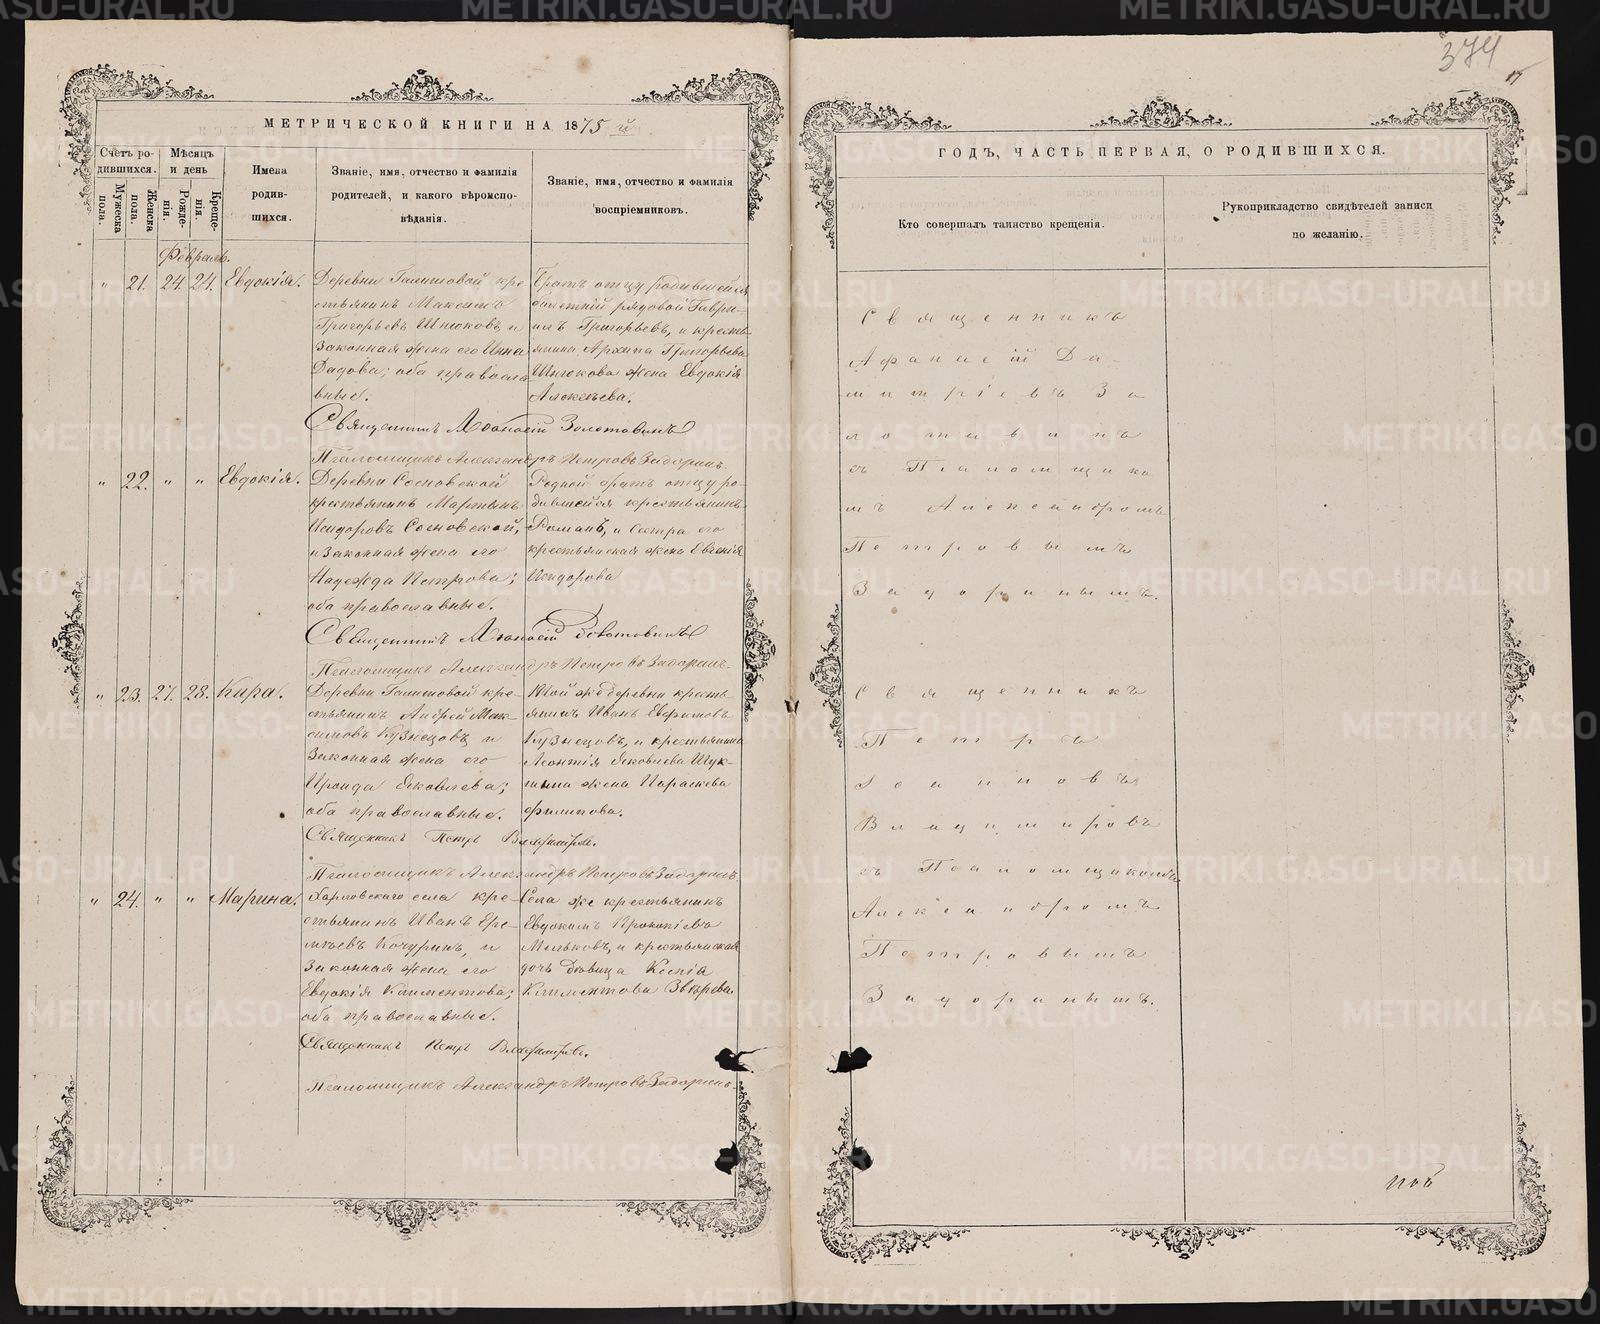 374
МЕТРИЧЕСКОЙ КНИГИ НА 1875 й
Счетъ родившихся.
Мѣсяцъ и день
Мужеска пола.
Женска пола.
Рожденія.
Крещенія.
Имена родившихся.
Званіе, имя, отчество и фамилія
родителей, и какого вѣроиспо-
вѣданія.
Званіе, имя, отчество и фамилія
воспріемниковъ.
Февраль.
" 21. 24. 24. Евдокія.
Деревни Галишовой кре-
стьянинъ Максимъ
Григорьевъ и
законная жена его Анна
оба правосла-
вные.
Братъ отцу родившейся
рядовой Гаври-
илъ Григорьевъ, и кресть-
янина Архипа Григорьева
жена Евдокія
Алексѣева.
Священникъ Аѳанасій Золотавинъ
Псаломщикъ Александръ Петровъ Задоринъ.
" 22. " " Евдокія.
Деревни Сосновской
крестьянинъ Мартинъ
Исидоровъ Сосновской,
и законная жена его
Надежда Петрова;
оба православные.
Родной братъ отцу ро-
дившейся крестьянинъ
Романъ, и сестра его
крестьянская жена Евгенія
Исидорова
Священникъ Аѳанасій Золотавинъ
Псаломщикъ Александръ Петровъ Задоринъ.
" 23. 27. 28. Кира.
Деревни Галишовой кре-
стьянинъ Андрей Мак-
симовъ Кузнецовъ и
законная жена его
Ираида Яковлева;
оба православные.
Той же деревни кресть-
янинъ Иванъ Евфимовъ
Кузнецовъ, и крестьянина
Леонтія Яковлева Шук-
шина жена Параскева
Филипова.
Священникъ Петръ Владимировъ.
Псаломщикъ Александръ Петровъ Задоринъ
" 24. " " Марина.
Харловскаго села кре-
стьянинъ Иванъ Ере-
мѣевъ Кочуринъ, и
законная жена его
Евдокія Климентова;
оба православные.
Села же крестьянинъ
Евдокимъ Прокопіевъ
Мильковъ, и крестьянская
дочь дѣвица Ксенія
Климентова Звѣрева.
Священникъ Петръ Владимировъ.
Псаломщикъ Александръ Петровъ Задоринъ
ГОДЪ, ЧАСТЬ ПЕРВАЯ, О РОДИВШИХСЯ.
Кто совершалъ таинство крещенія.
Рукоприкладство свидѣтелей записи
по желанію.
Священникъ
Афанасій Ди-
митріевъ Зо
лотавинъ
съ Псаломщико
мъ Александромъ
Петровымъ
Задоринымъ.
Священникъ
Петръ
Іоанновъ
Владимировъ
съ Псаломщикомъ
Александромъ
Петровымъ
Задоринымъ.
METRIKI.GASO-URAL.RU